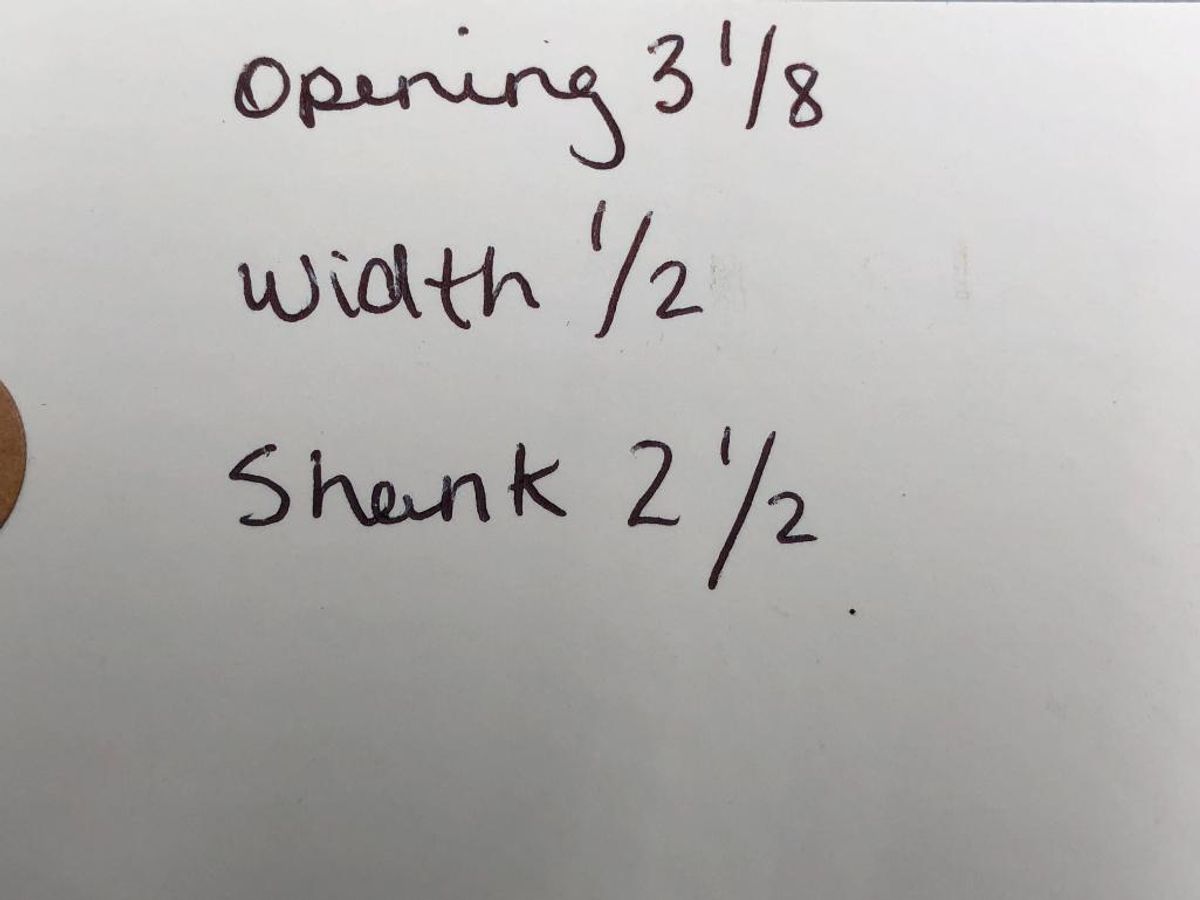 Opening 3 1/8
Width 1/2
Shank 2 1/2